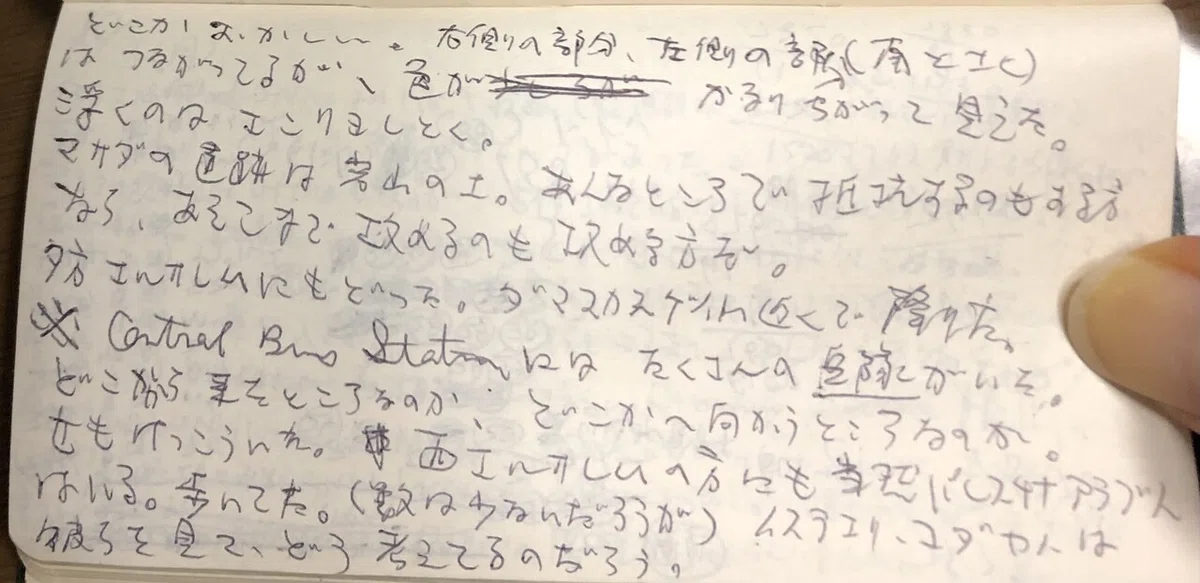 どこかおかしい。右側の部分、左側の部分(南と北)
はつながってるが、色が かなりちがって見えた。
浮くのは エンゲディとしとく。
マサダの遺跡は岩山の上。あんなところで抵抗するのもする方
なら、あそこまで攻めるのも攻める方だ。
夕方エルサレムにもどった。ダマスカスゲート近くで降りた。
※ Central Bus Station にはたくさんの兵隊がいた。
どこから来たところなのか、どこかへ向かうところなのか。
女もけっこういた。西エルサレムの方にも当然パレスチナアラブ人
はいる。歩いてた。(数は少ないだろうが) イスラエリ、ユダヤ人は
彼らを見て、どう考えてるのだろう。